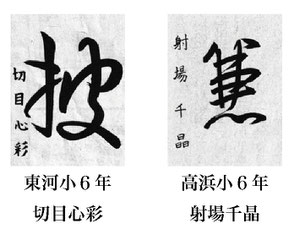 披
切目心彩
東河小6年
切目心彩
射場千晶
高浜小6年
射場千晶